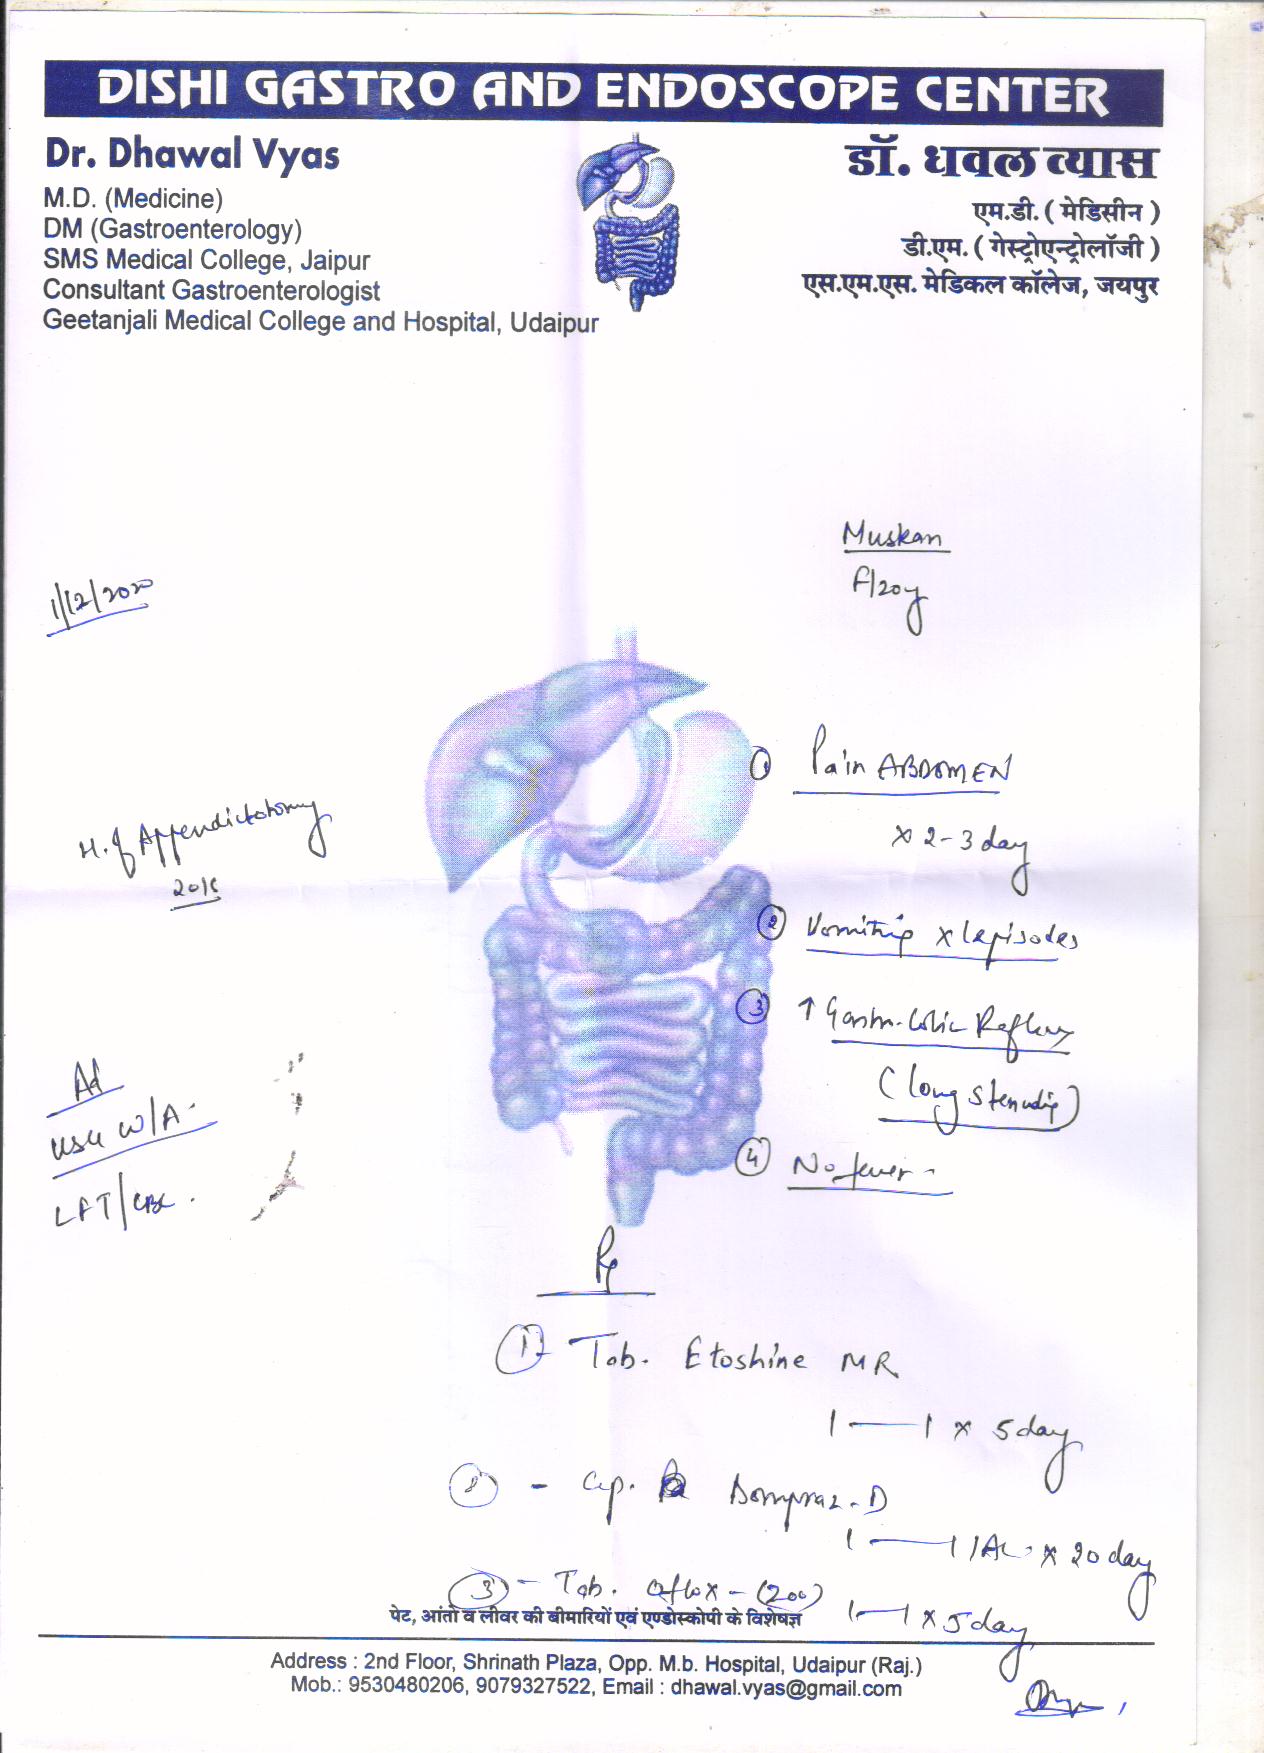 DISHI GASTRO AND ENDOSCOPE CENTER
Dr. Dhawal Vyas
M.D. (Medicine)
DM (Gastroenterology)
SMS Medical College, Jaipur
Consultant Gastroenterologist
Geetanjali Medical College and Hospital, Udaipur
डॉ. धवल व्यास
एम.डी. ( मेडिसीन )
डी.एम. ( गेस्ट्रोएन्ट्रोलॉजी )
एस.एम.एस. मेडिकल कॉलेज, जयपुर
Muskan
F/20y
1/12/2020
① Pain ABDOMEN
x 2-3 day
H. of Appendictotomy
② Vomiting x 1 episodes
③ ↑ Gastro-Colic Reflux
(long standing)
④ No fever
Ad
USG W/A
LFT/CBC
Rx
① Tab. Etoshine MR
1 — 1 x 5 day
- Cap. Dompraz-D
1 — 1 x 20 day
③ - Tab. Oflox - (200)
1 — 1 x 5 day
पेट, आंतो व लीवर की बीमारियों एवं एण्डोस्कोपी के विशेषज्ञ
Address : 2nd Floor, Shrinath Plaza, Opp. M.b. Hospital, Udaipur (Raj.)
Mob.: 9530480206, 9079327522, Email : dhawal.vyas@gmail.com